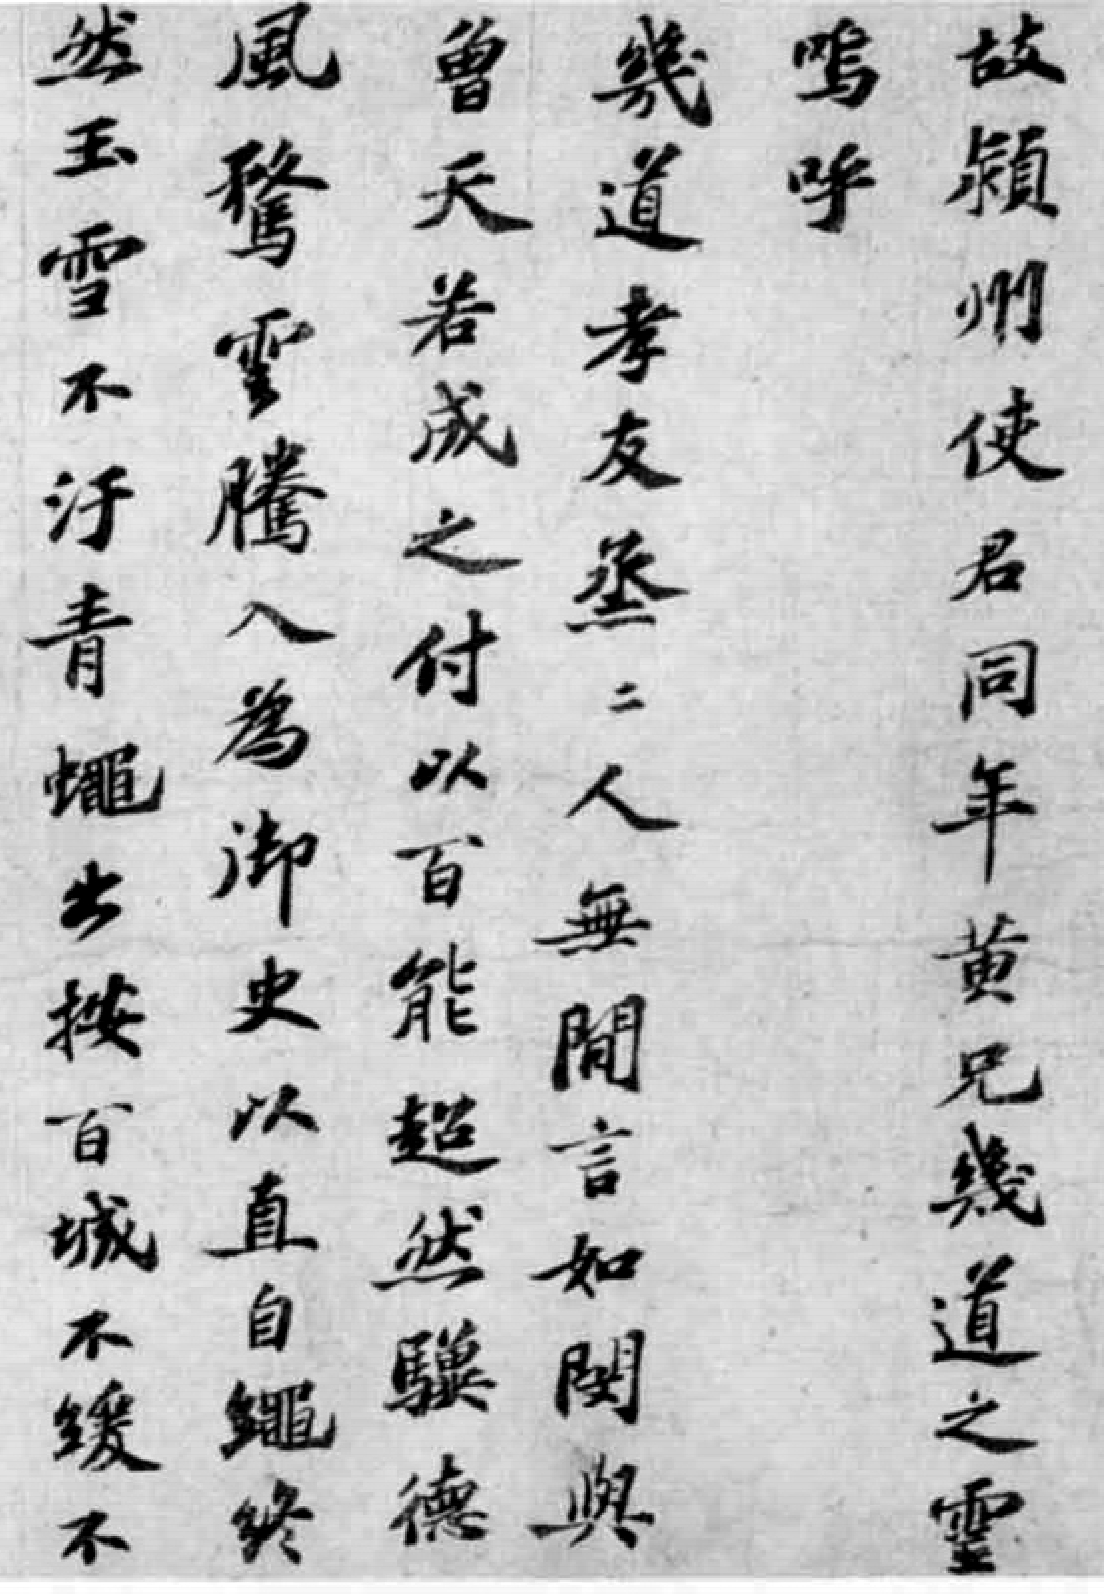 故潁州使君同年黄兄幾道之靈
嗚呼
幾道孝友烝二人無閒言如閔與
曾天若成之付以百能超然驥德
風騖雲騰入為御史以直自繩終
然玉雪不汙青蠅出按百城不緩不